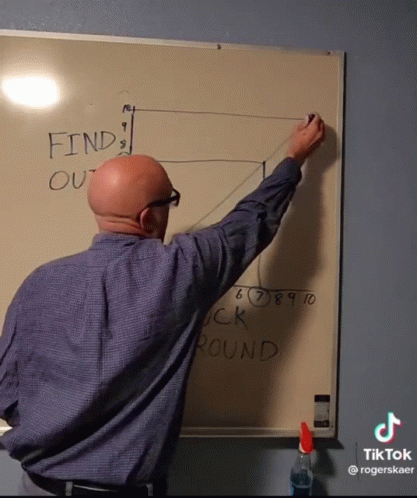 10
9
8
FIND
OU
6 7 8 9 10
UCK
ROUND
TikTok
@rogerskaer